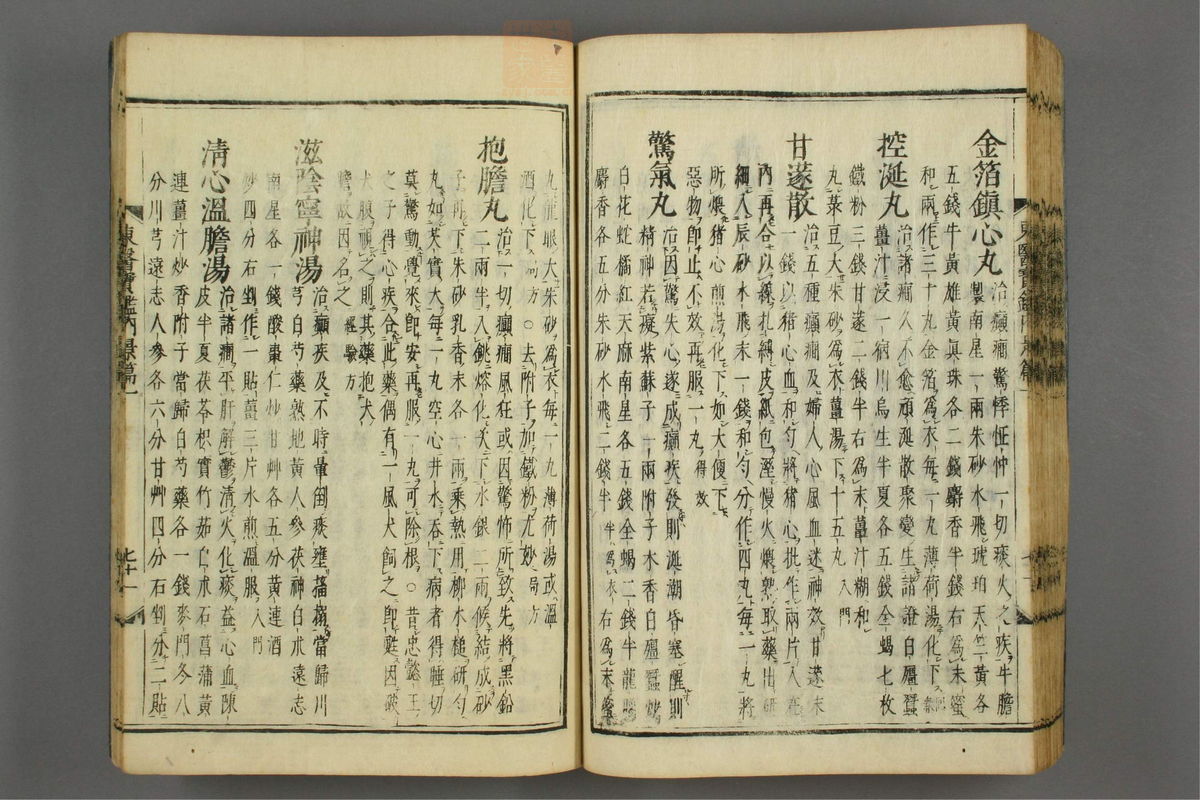 金箔鎮心丸 治癲癇驚悸怔忡一切痰火之疾牛膽
製南星一兩朱砂水飛琥珀天竺黃各
五錢牛黃雄黃眞珠各二錢麝香半錢右爲末蜜
和兩作三十丸金箔爲衣每一丸薄荷湯化下
控涎丸 治諸癇久不愈頑涎散聚變生諸證白殭蠶
薑汁浸一宿川烏生半夏各五錢全蝎七枚
鐵粉三錢甘遂二錢半右爲末薑汁糊和
丸菉豆大朱砂爲衣薑湯下十五丸 入門
甘遂散 治五種癲癇及婦人心風血迷神效甘遂末
一錢以猪心血和勻將猪心批作兩片入
內再合以線扎縛皮紙包溼慢火煨熟取藥出研
細入辰砂水飛末一錢和勻分作四丸每一丸將
所煨猪心煎湯化下如大便下
惡物卽止不效再服一丸 得效
驚氣丸 治因驚失心遂成癲疾發則涎潮昏塞醒則
精神若癡紫蘇子一兩附子木香白殭蠶炒
白花蛇橘紅天麻南星各五錢全蝎二錢半龍腦
麝香各五分朱砂水飛二錢半 半爲衣 右爲末蜜
丸龍眼大朱砂爲衣每一丸薄荷湯或溫
酒化下 局方 ○去附子加鐵粉尤妙 局方
抱膽丸 治一切癲癇風狂或因驚怖所致先將黑鉛
二兩半入銚熔化次下水銀二兩候結成砂
子再下朱砂乳香末各一兩乘熱用柳木槌研勻
丸如芡實大每一丸空心井水呑下病者得睡切
莫驚動覺來卽安再服一丸可除根○昔忠懿王
之子得心疾合此藥偶有一風犬飼之卽甦因破
犬腹視之則其藥抱犬
膽故因名之 經驗方
滋陰寧神湯 治癲疾及不時暈倒痰壅搐搦當歸川
芎白芍藥熟地黃人參茯神白朮遠志
南星各一錢酸棗仁炒甘艸各五分黃連酒
炒四分右剉作一貼薑三片水煎溫服 入門
淸心溫膽湯 治諸癇平肝解鬱淸火化痰益心血陳
皮半夏茯苓枳實竹茹白朮石菖蒲黃
連薑汁炒香附子當歸白芍藥各一錢麥門冬八
分川芎遠志人參各六分甘艸四分右剉分二貼
東醫寶鑑內景篇一
七十一